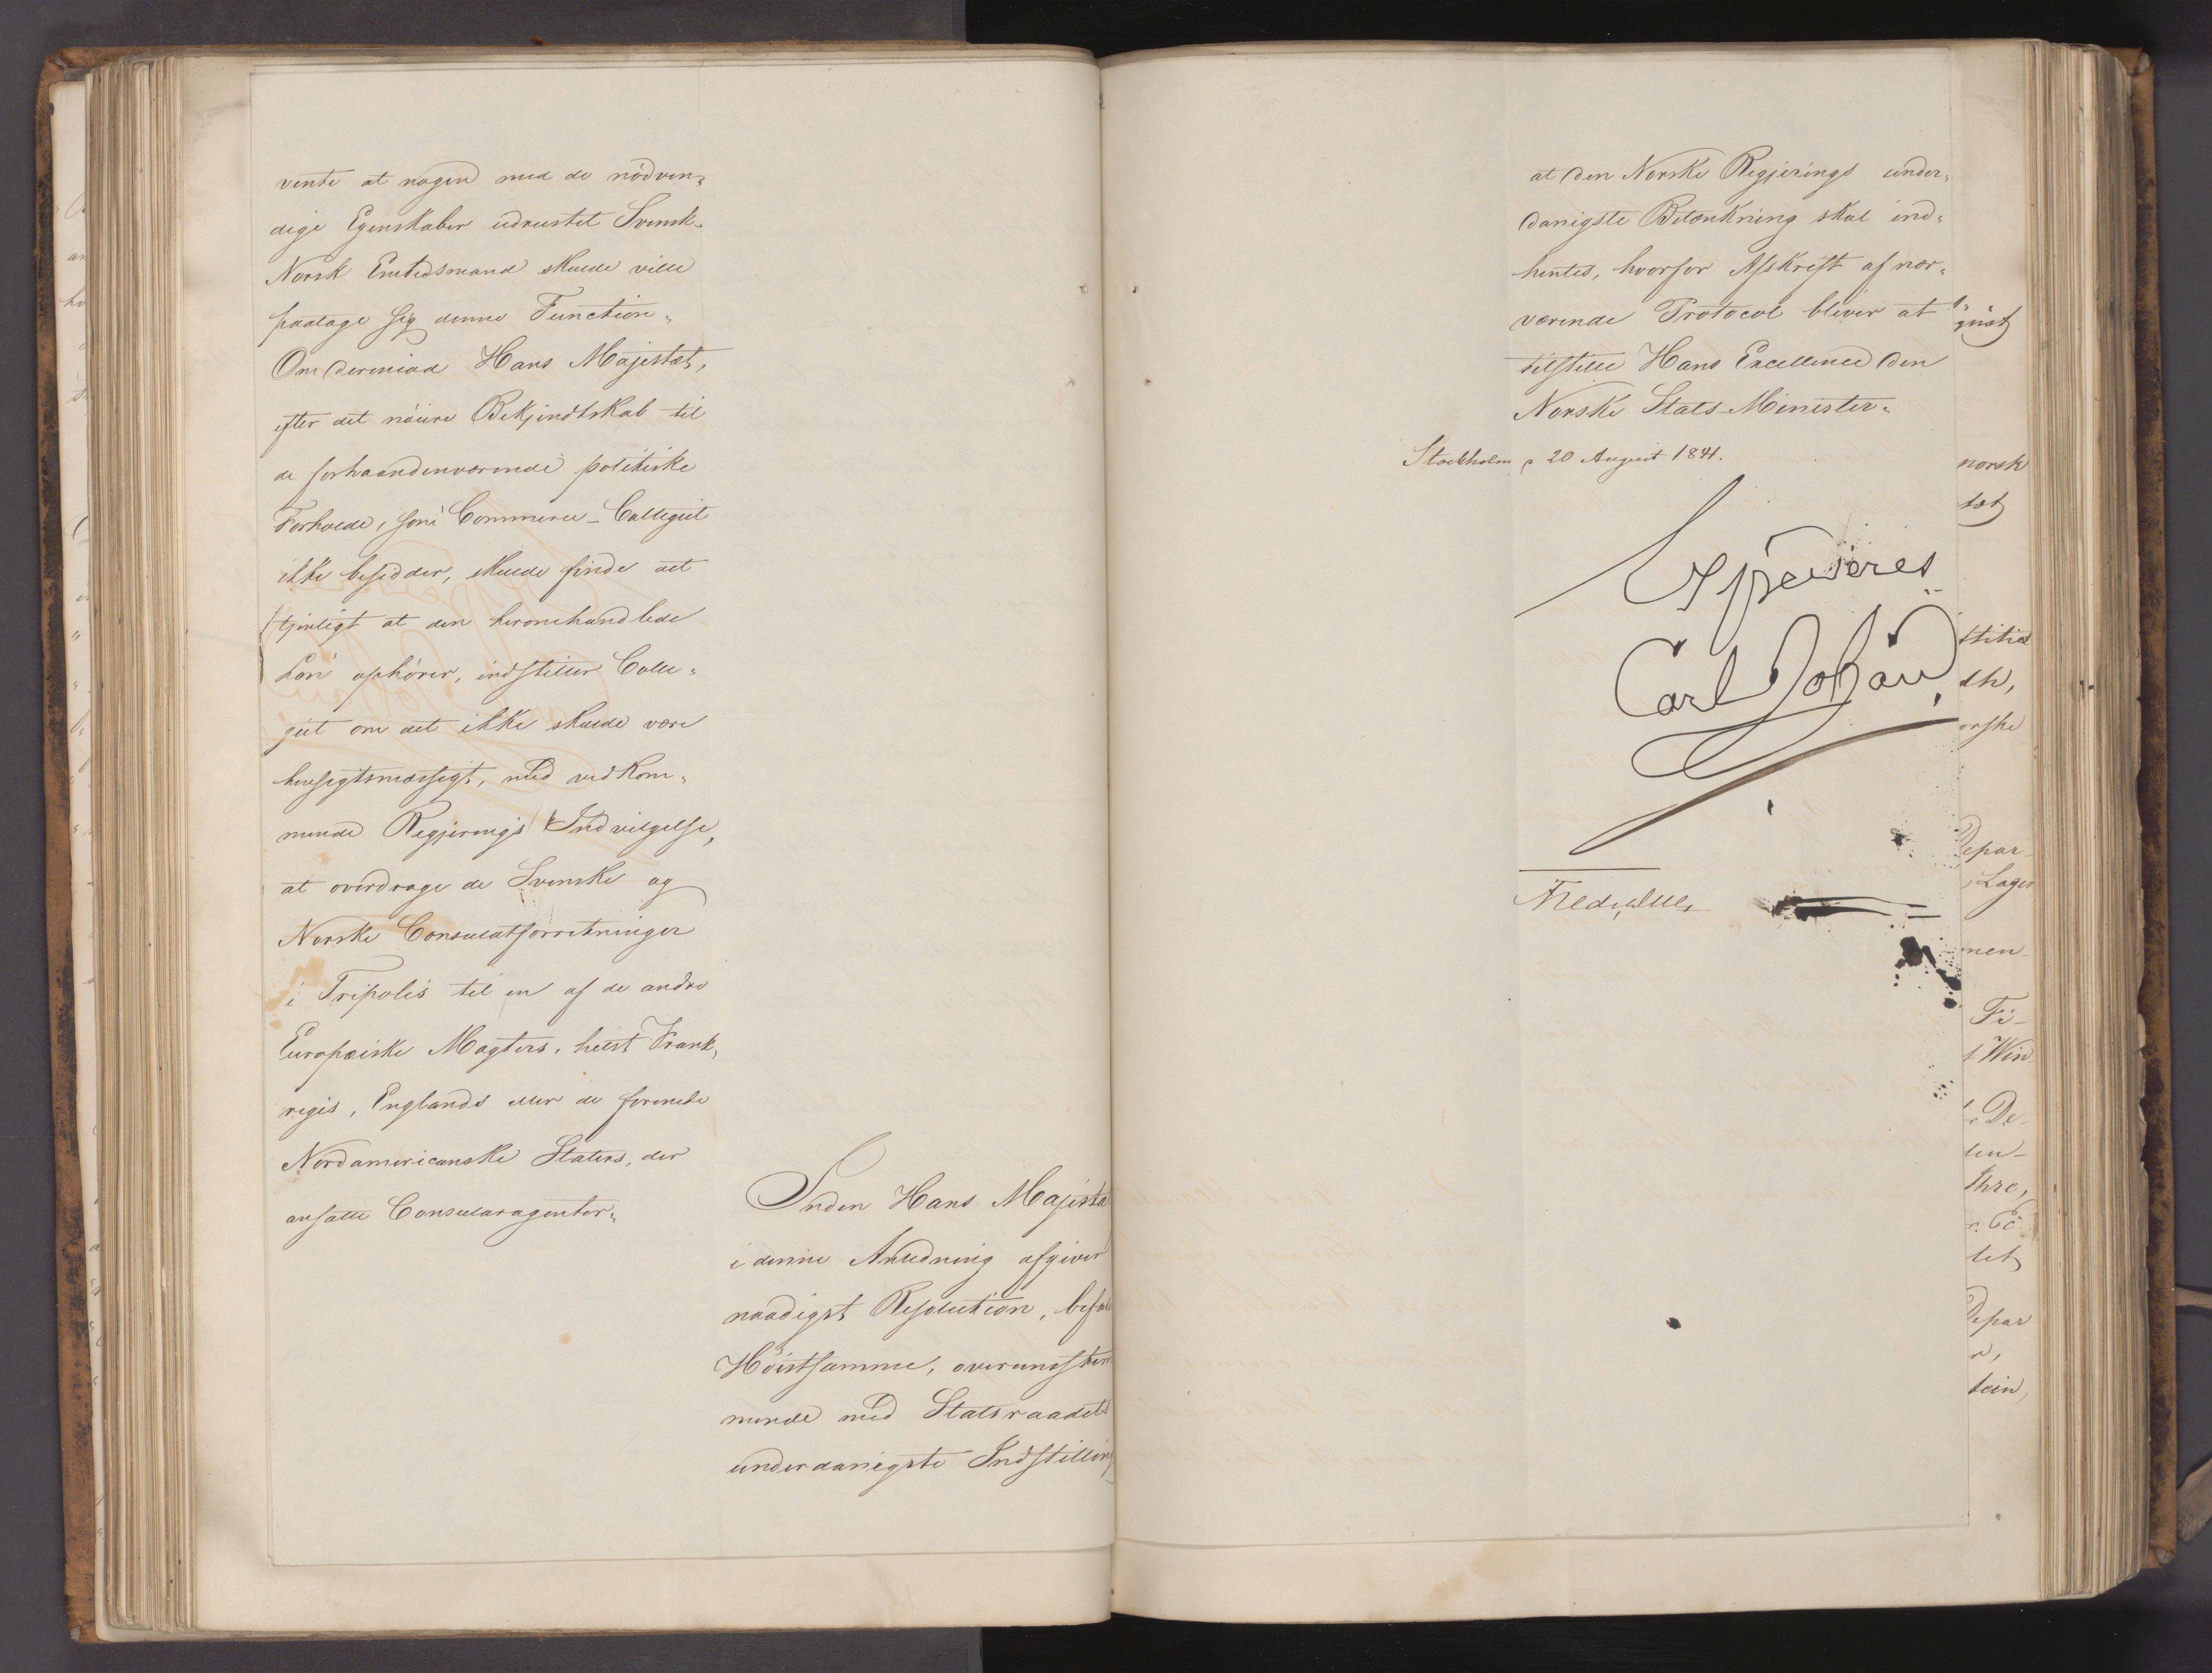 vente at nogen med de nödven-
dige Egenskaber udrustet Svensk-
Norsk Embedsmand skulde ville
paatage sig denne Function.
Om derimod Hans Majestæt,
efter det nöiere Bekjendtskab til
de forhaandenværende politiske
Forholde, som Commerce-Collegiet
ikke besidder, skulde finde det
tjenligt at den heromhandlede
Lön ophörer, indstiller Colle-
giet om det ikke skulde være
hensigtsmæssigt, med vedkom-
mende Regjerings Indvilgelse,
at overdrage de Svenske og
Norske Consulatforretninger
i Tripolis til en af de andre
Europæiske Magters, helst Frank-
rigs, Englands eller de forenede
Nordamericanske Staters, der
ansatte Consularagenter.
Inden Hans Majestæ
i denne Anledning afgiver
naadigst Resolution, befal
Höistsamme, overensstem
mende med Statsraadets
underdanigste Indstilling
at den Norske Regjerings under-
danigste Betænkning skal ind-
hentes, hvorfor Afskrift af nær-
værende Protocol bliver at
tilstille Hans Excellence den
Norske Stats-Minister.
Stockholm d 20 August 1841.
Expedieres
Carl Johan
gust
norsk
tæt
stitia
sk,
orske
Depar-
Lager
men-
Fi-
t Win
r De-
len-
Ihre,
tet
Depar
n,
tein,